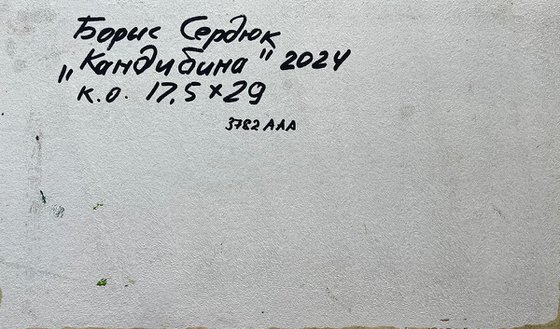 Борис Сердюк
„Кандибина" 2024
к.о. 17,5×29
3782 ААА